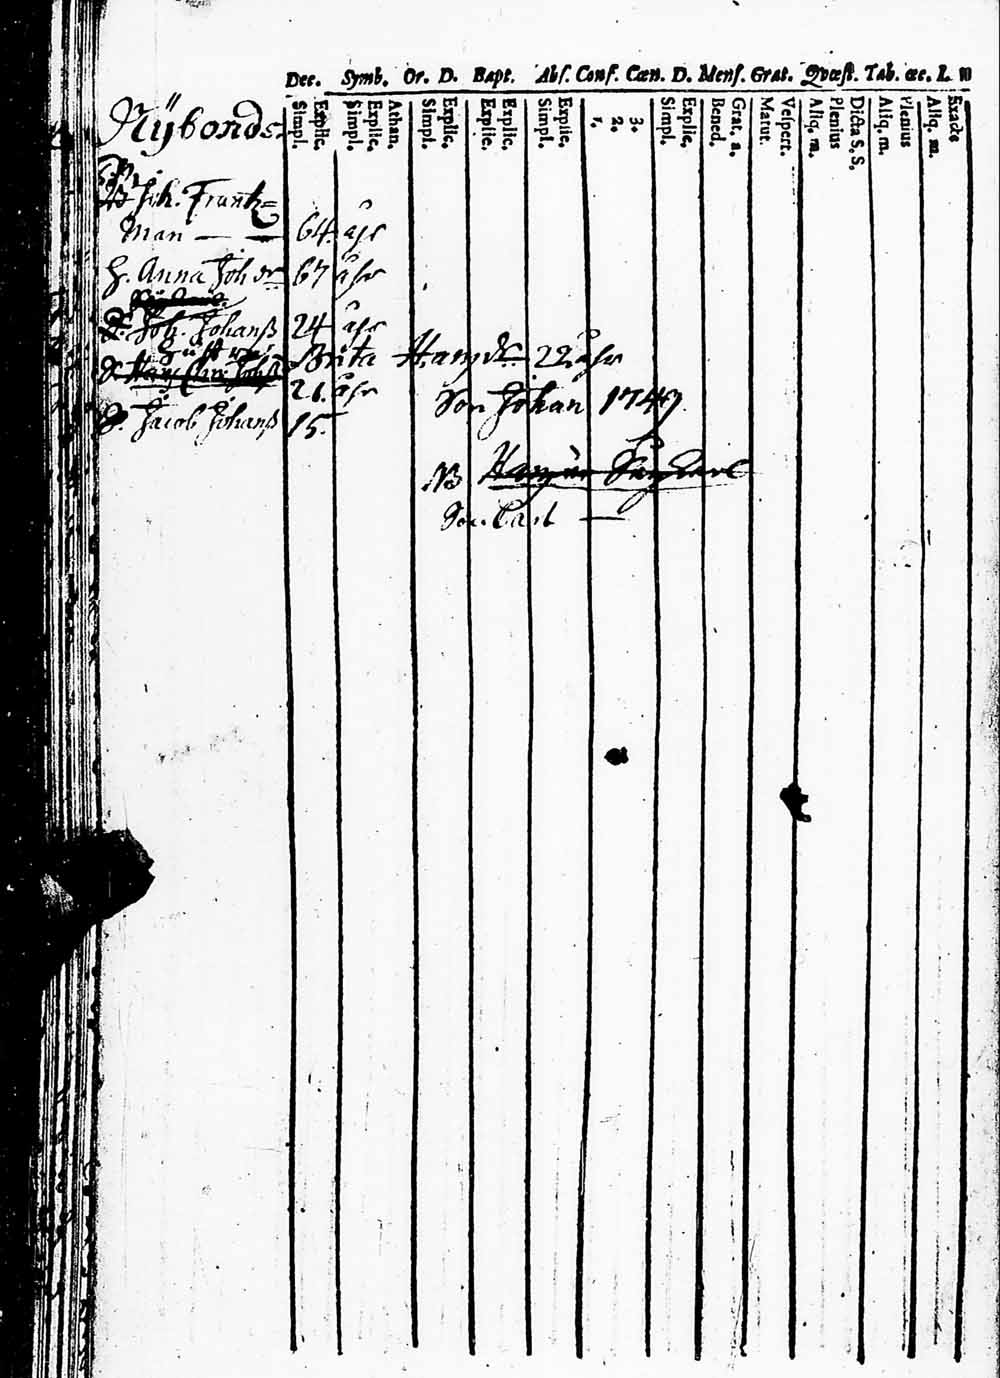 Dec. Symb. Or. D. Bapt. Abs. Conf. Cœn. D. Mens. Grat. Qvæst. Tab. œc. L. m
Simpl. Explic. Simpl. Explic. Athan. Simpl. Explic. Explic. Explic. Simpl. Explic. 1. 2. 3. Simpl. Explic. Bened. Grat. a. Matut. Vespert. Aliq. m. Plenius Dicta S. S. Aliq. m. Plenius Aliq. m. Exacte
Nÿbonds
Joh. Frantz=
man — — 64. åhr
H. Anna Joh dr 67 åhr
S. Joh. Johanß 24 åhr
Hustru Brita Hansdr 22 åhr
21. åhr
Son Johan 1747
S. Jacob Johanß 15.
NB
Son Carl —